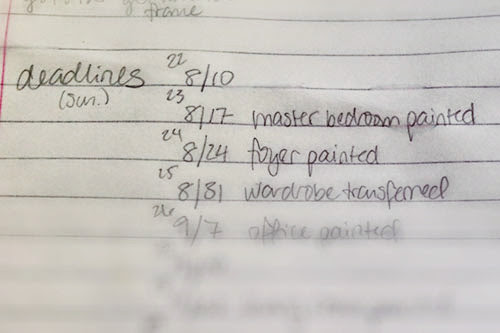 frame
deadlines 22 8/10
(sun.) 23 8/17 master bedroom painted
24 8/24 foyer painted
25 8/31 wardrobe transferred
26 9/7 office painted